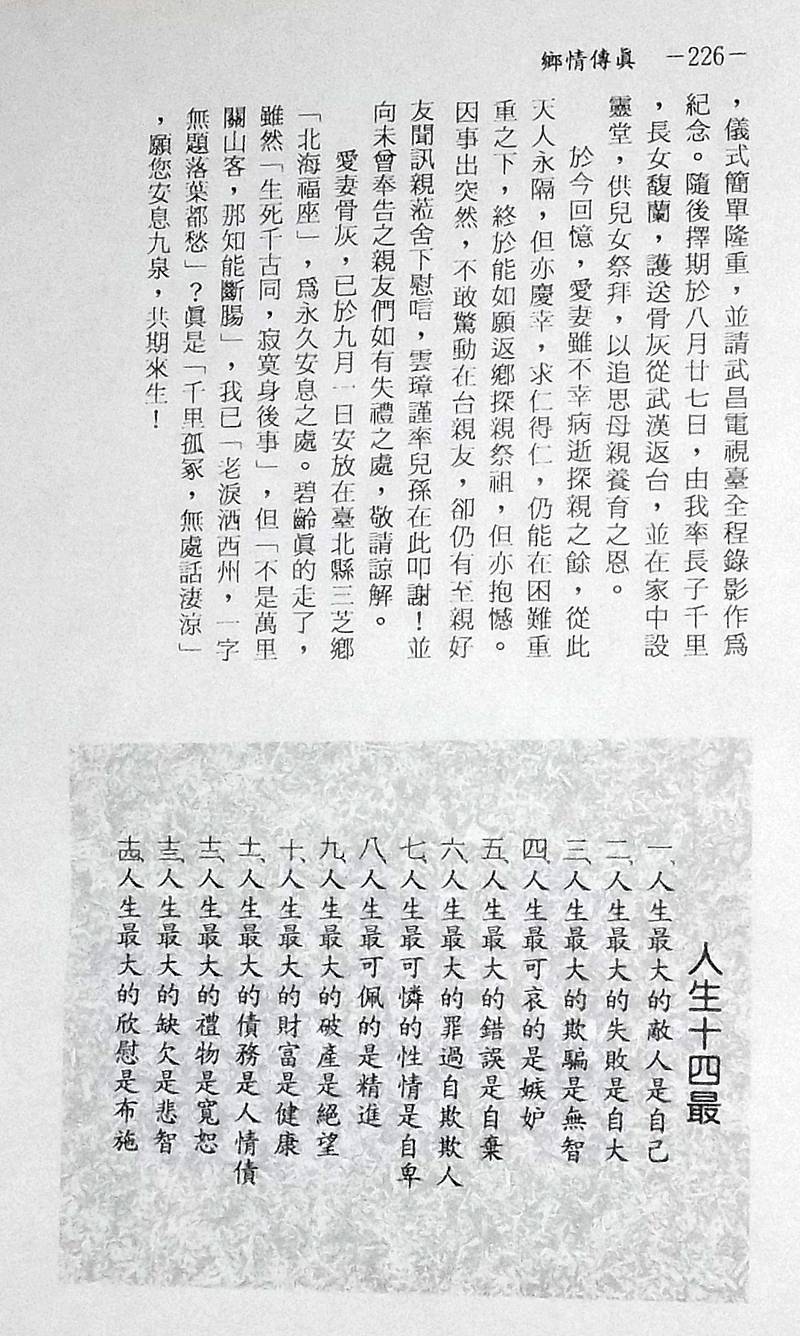 鄉情傳眞 －226－
，儀式簡單隆重，並請武昌電視臺全程錄影作爲
紀念。隨後擇期於八月廿七日，由我率長子千里
，長女馥蘭，護送骨灰從武漢返台，並在家中設
靈堂，供兒女祭拜，以追思母親養育之恩。
於今回憶，愛妻雖不幸病逝探親之餘，從此
天人永隔，但亦慶幸，求仁得仁，仍能在困難重
重之下，終於能如願返鄉探親祭祖，但亦抱憾。
因事出突然，不敢驚動在台親友，卻仍有至親好
友聞訊親蒞舍下慰唁，雲璋謹率兒孫在此叩謝！並
向未曾奉告之親友們如有失禮之處，敬請諒解。
愛妻骨灰，已於九月一日安放在臺北縣三芝鄉
「北海福座」，爲永久安息之處。碧齡眞的走了，
雖然「生死千古同，寂寞身後事」，但「不是萬里
關山客，那知能斷腸」，我已「老淚洒西州，一字
無題落葉都愁」？眞是「千里孤冢，無處話淒涼」
，願您安息九泉，共期來生！
人生十四最
一、人生最大的敵人是自己
二、人生最大的失敗是自大
三、人生最大的欺騙是無智
四、人生最可哀的是嫉妒
五、人生最大的錯誤是自棄
六、人生最大的罪過自欺欺人
七、人生最可憐的性情是自卑
八、人生最可佩的是精進
九、人生最大的破產是絕望
十、人生最大的財富是健康
十一、人生最大的債務是人情債
十二、人生最大的禮物是寬恕
十三、人生最大的缺欠是悲智
十四、人生最大的欣慰是布施